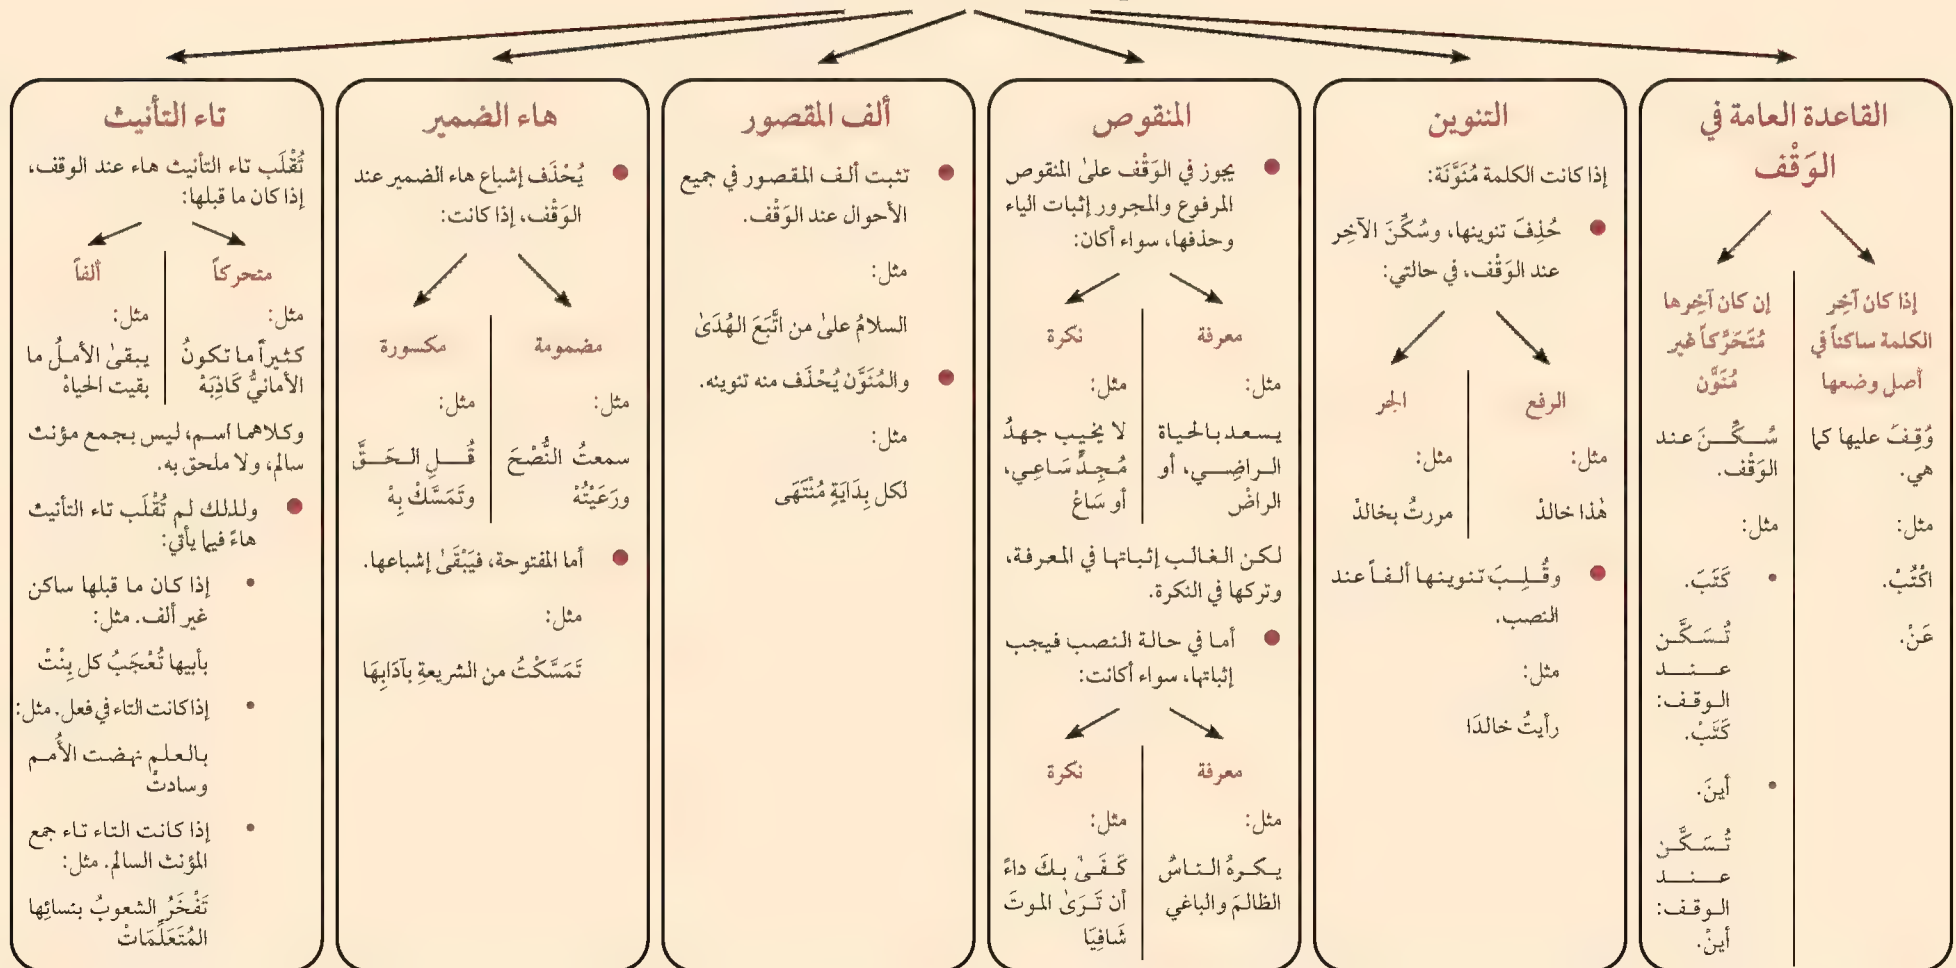 القاعدة العامة في
الوَقْف
إذا كان آخِر
الكلمة ساكناً في
أصل وضعها
وُقِفَ عليها كما
هي.
مثل:
اكْتُبْ.
عَنْ.
إن كان آخِرها
مُتَحَرِّكاً غير
مُنَوَّن
سُـكِّـنَ عـنـد
الوَقْف.
مثل:
• كَتَبَ.
تُـسَـكَّـن
عـــنـــد
الـوقـف:
كَتَبْ.
• أينَ.
تُـسَـكَّـن
عـــنـــد
الـوقـف:
أينْ.
التنوين
إذا كانت الكلمة مُنَوَّنَة:
● حُذِفَ تنوينها، وسُكِّنَ الآخِر
عند الوَقْف، في حالتي:
الرفع
مثل:
هٰذا خالدْ
الجر
مثل:
مررتُ بخالدْ
● وقُـلِـبَ تنوينـها ألـفـاً عند
النصب.
مثل:
رأيتُ خالدَا
المنقوص
● يجوز في الوَقْف علىٰ المنقوص
المرفوع والمجرور إثبات الياء
وحذفها، سواء أكان:
معرفة
مثل:
يـسـعـد بـالحـياة
الـراضِــي، أو
الراضْ
نكرة
مثل:
لا يخيب جهدُ
مُـجِـدٍّ سَـاعِـي،
أو سَاعْ
لـكـن الـغـالـب إثـبـاتـهـا في الـمـعـرفـة،
وتركها في النكرة.
● أمـا في حـالـة النـصب فـيجب
إثباتها، سواء أكانت:
معرفة
مثل:
يـكـرهُ الـنـاسُ
الظالمَ والباغي
نكرة
مثل:
كَـفَـىٰ بـكَ داءً
أن تَـرَىٰ الموتَ
شَافِيَا
ألف المقصور
● تثبت ألف المقصور في جميع
الأحوال عند الوَقْف.
مثل:
السلامُ علىٰ من اتَّبَعَ الهُدَىٰ
● والمُنَوَّن يُحْذَف منه تنوينه.
مثل:
لكل بِدَايَةٍ مُنْتَهَى
هاء الضمير
● يُحْذَف إشباع هاء الضمير عند
الوَقْف، إذا كانت:
مضمومة
مثل:
سمعتُ النُّصْحَ
ورَعَيْتُهْ
مكسورة
مثل:
قُـــلِ الـحَـــقَّ
وتَمَسَّكْ بِهْ
● أما المفتوحة، فيَبْقَىٰ إشباعها.
مثل:
تَمَسَّكْتُ من الشريعةِ بآدَابِهَا
تاء التأنيث
تُقْلَب تاء التأنيث هاء عند الوقف،
إذا كان ما قبلها:
متحركاً
مثل:
كـثـيراً مـا تـكـونُ
الأمانيُّ كَاذِبَهْ
ألفاً
مثل:
يـبـقىٰ الأمـلُ مـا
بقيت الحياهْ
وكـلاهمـا اسـم، لـيس بـجمع مؤنـث
سالم، ولا ملحق به.
● ولـذلك لـم تُقْلَب تـاء التأنيث
هاءً فيما يأتي:
• إذا كـان مـا قـبلها ساكن
غير ألف. مثل:
بأبيها تُعْجَبُ كل بِنْتْ
• إذا كانت التاء في فعل. مثل:
بـالـعـلـم نهـضـت الأُمـم
وسادتْ
• إذا كـانـت الـتـاء تـاء جمع
المؤنث السالم. مثل:
تَفْخَرُ الشعوبُ بنسائِها
المُتَعَلِّمَاتْ